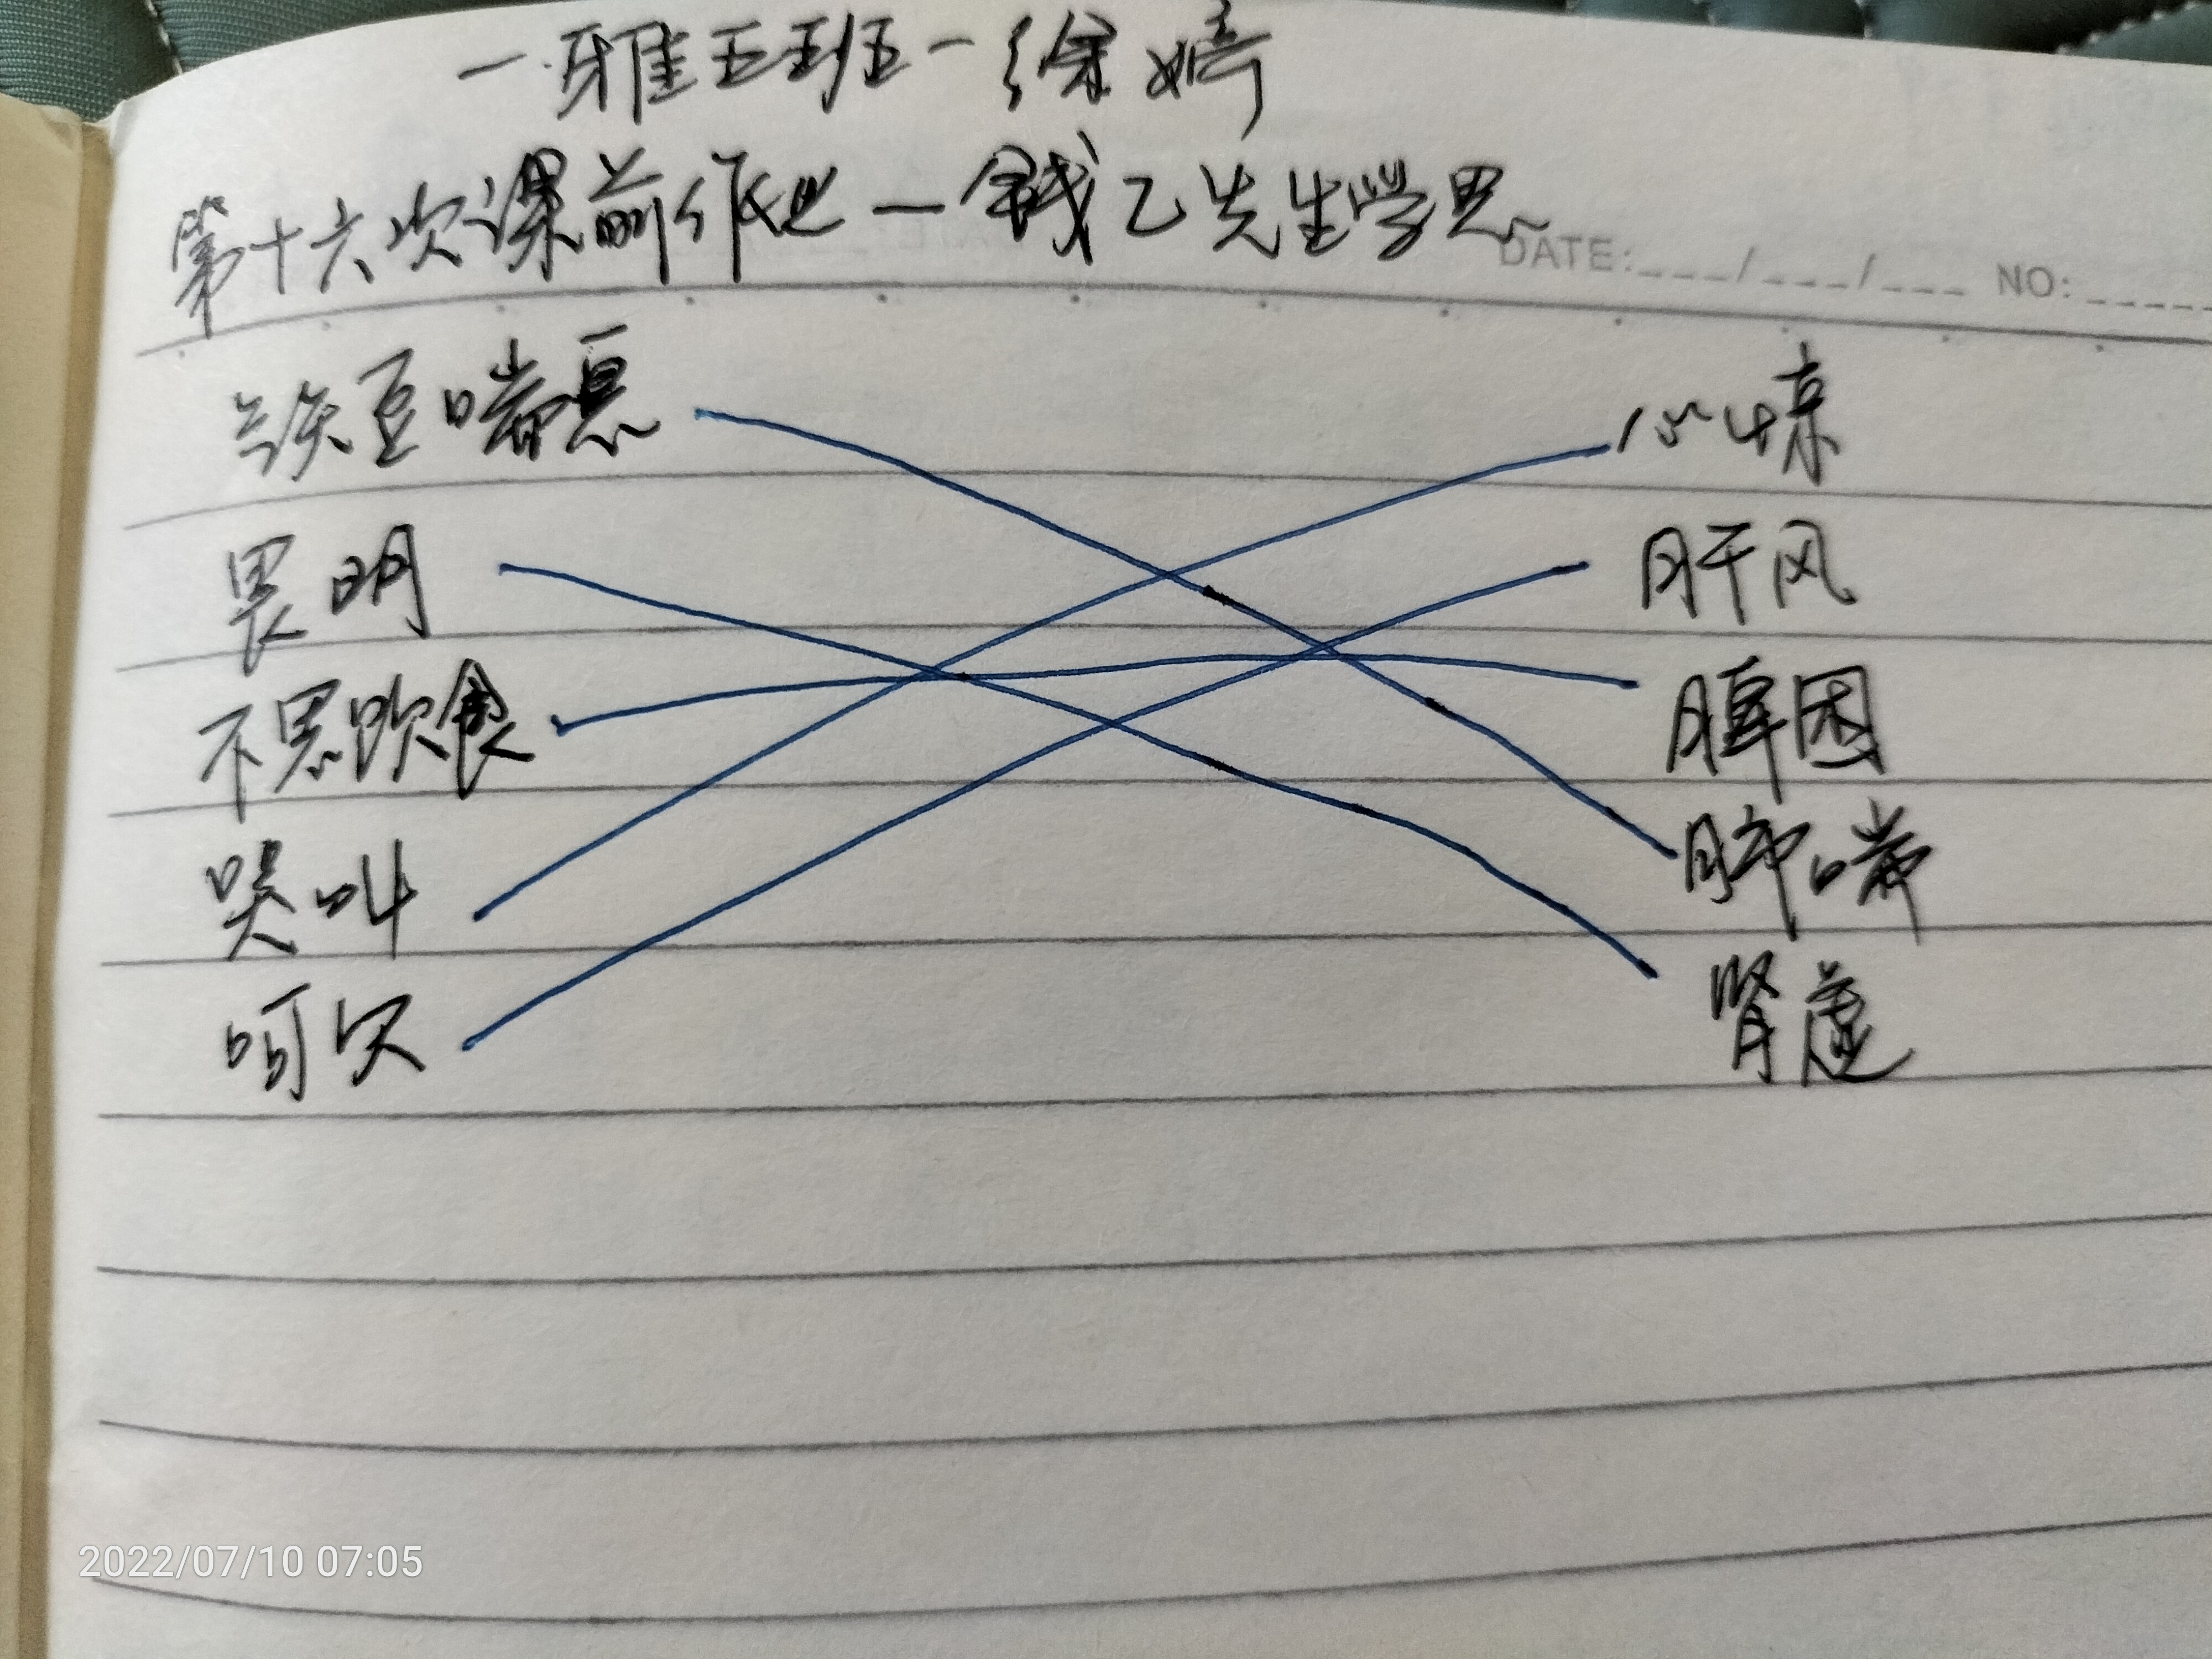 一雅五班一徐婷
第十六次课前作业一钱乙先生学思
DATE:___/___/___ NO:____
短喘息 心悸
畏明 肝风
不思饮食 脾困
哭叫 肺喘
呵欠 肾虚
2022/07/10 07:05